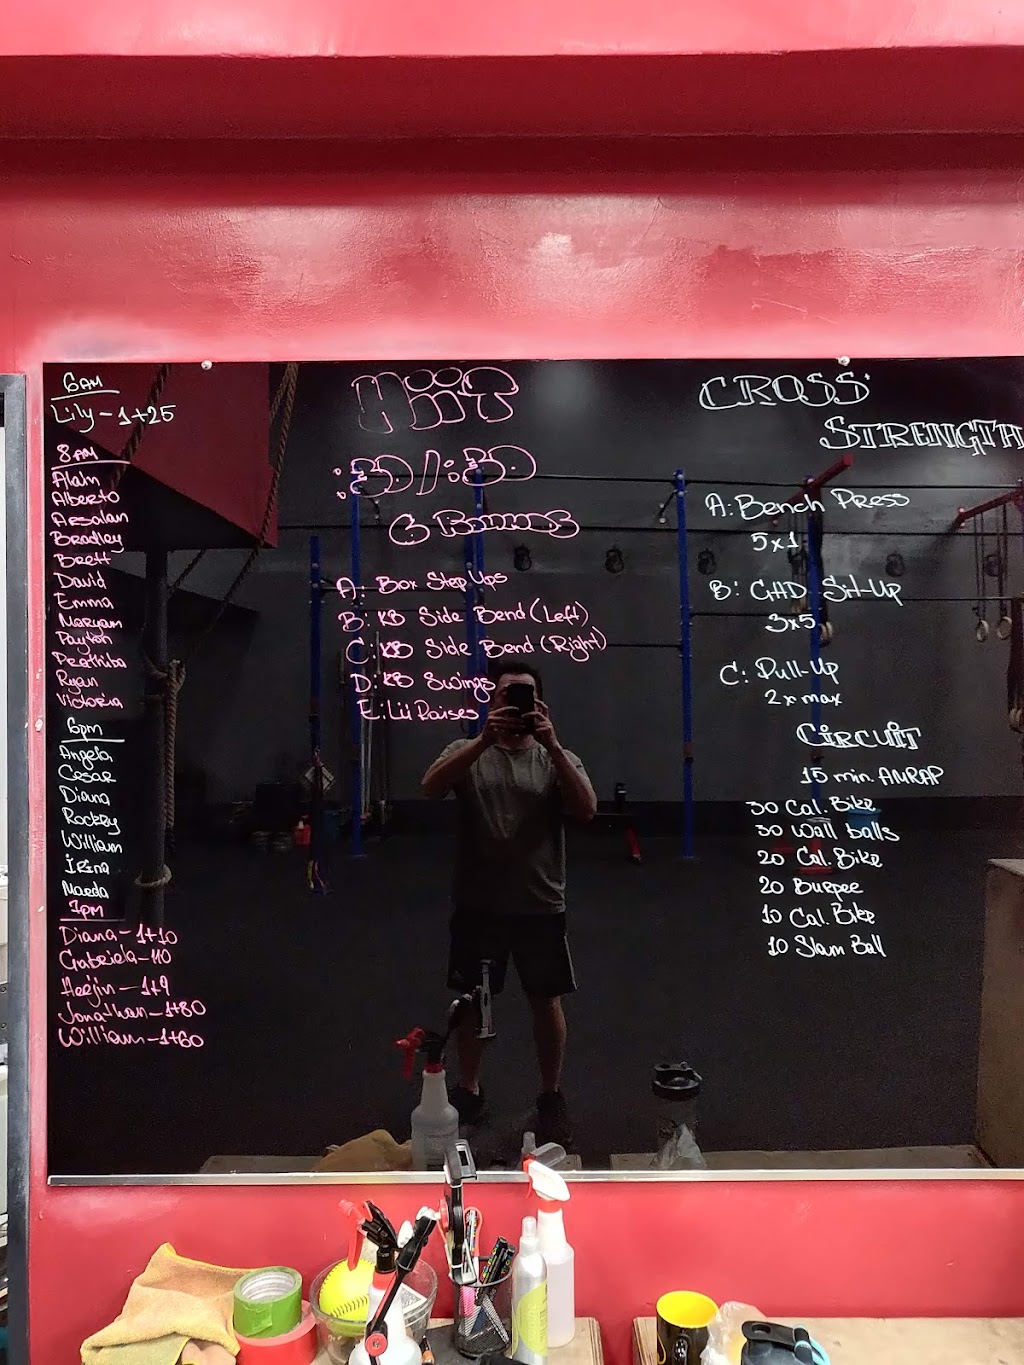 6AM
Lily - 1+25
8AM
Alain
Alberto
Arsalan
Bradley
Brett
David
Emma
Maryam
Payton
Prathiba
Ryan
Victoria
6pm
Angela
Cesar
Diana
Rockey
William
Irina
Maeda
7pm
Diana - 1+10
Gabriela - 110
Heejin - 1+9
Jonathan - 1+80
William - 1+60
HiiT
:30/:30
6 Rounds
A: Box Step Ups
B: KB Side Bend (Left)
C: KB Side Bend (Right)
D: KB Swings
E: Lii Raises
CROSS
STRENGTH
A: Bench Press
5x1
B: GHD Sit-Up
3x5
C: Pull-Up
2x max
CiRCUiT
15 min. AMRAP
30 Cal. Bike
30 Wall balls
20 Cal. Bike
20 Burpee
10 Cal. Bike
10 Slam Ball